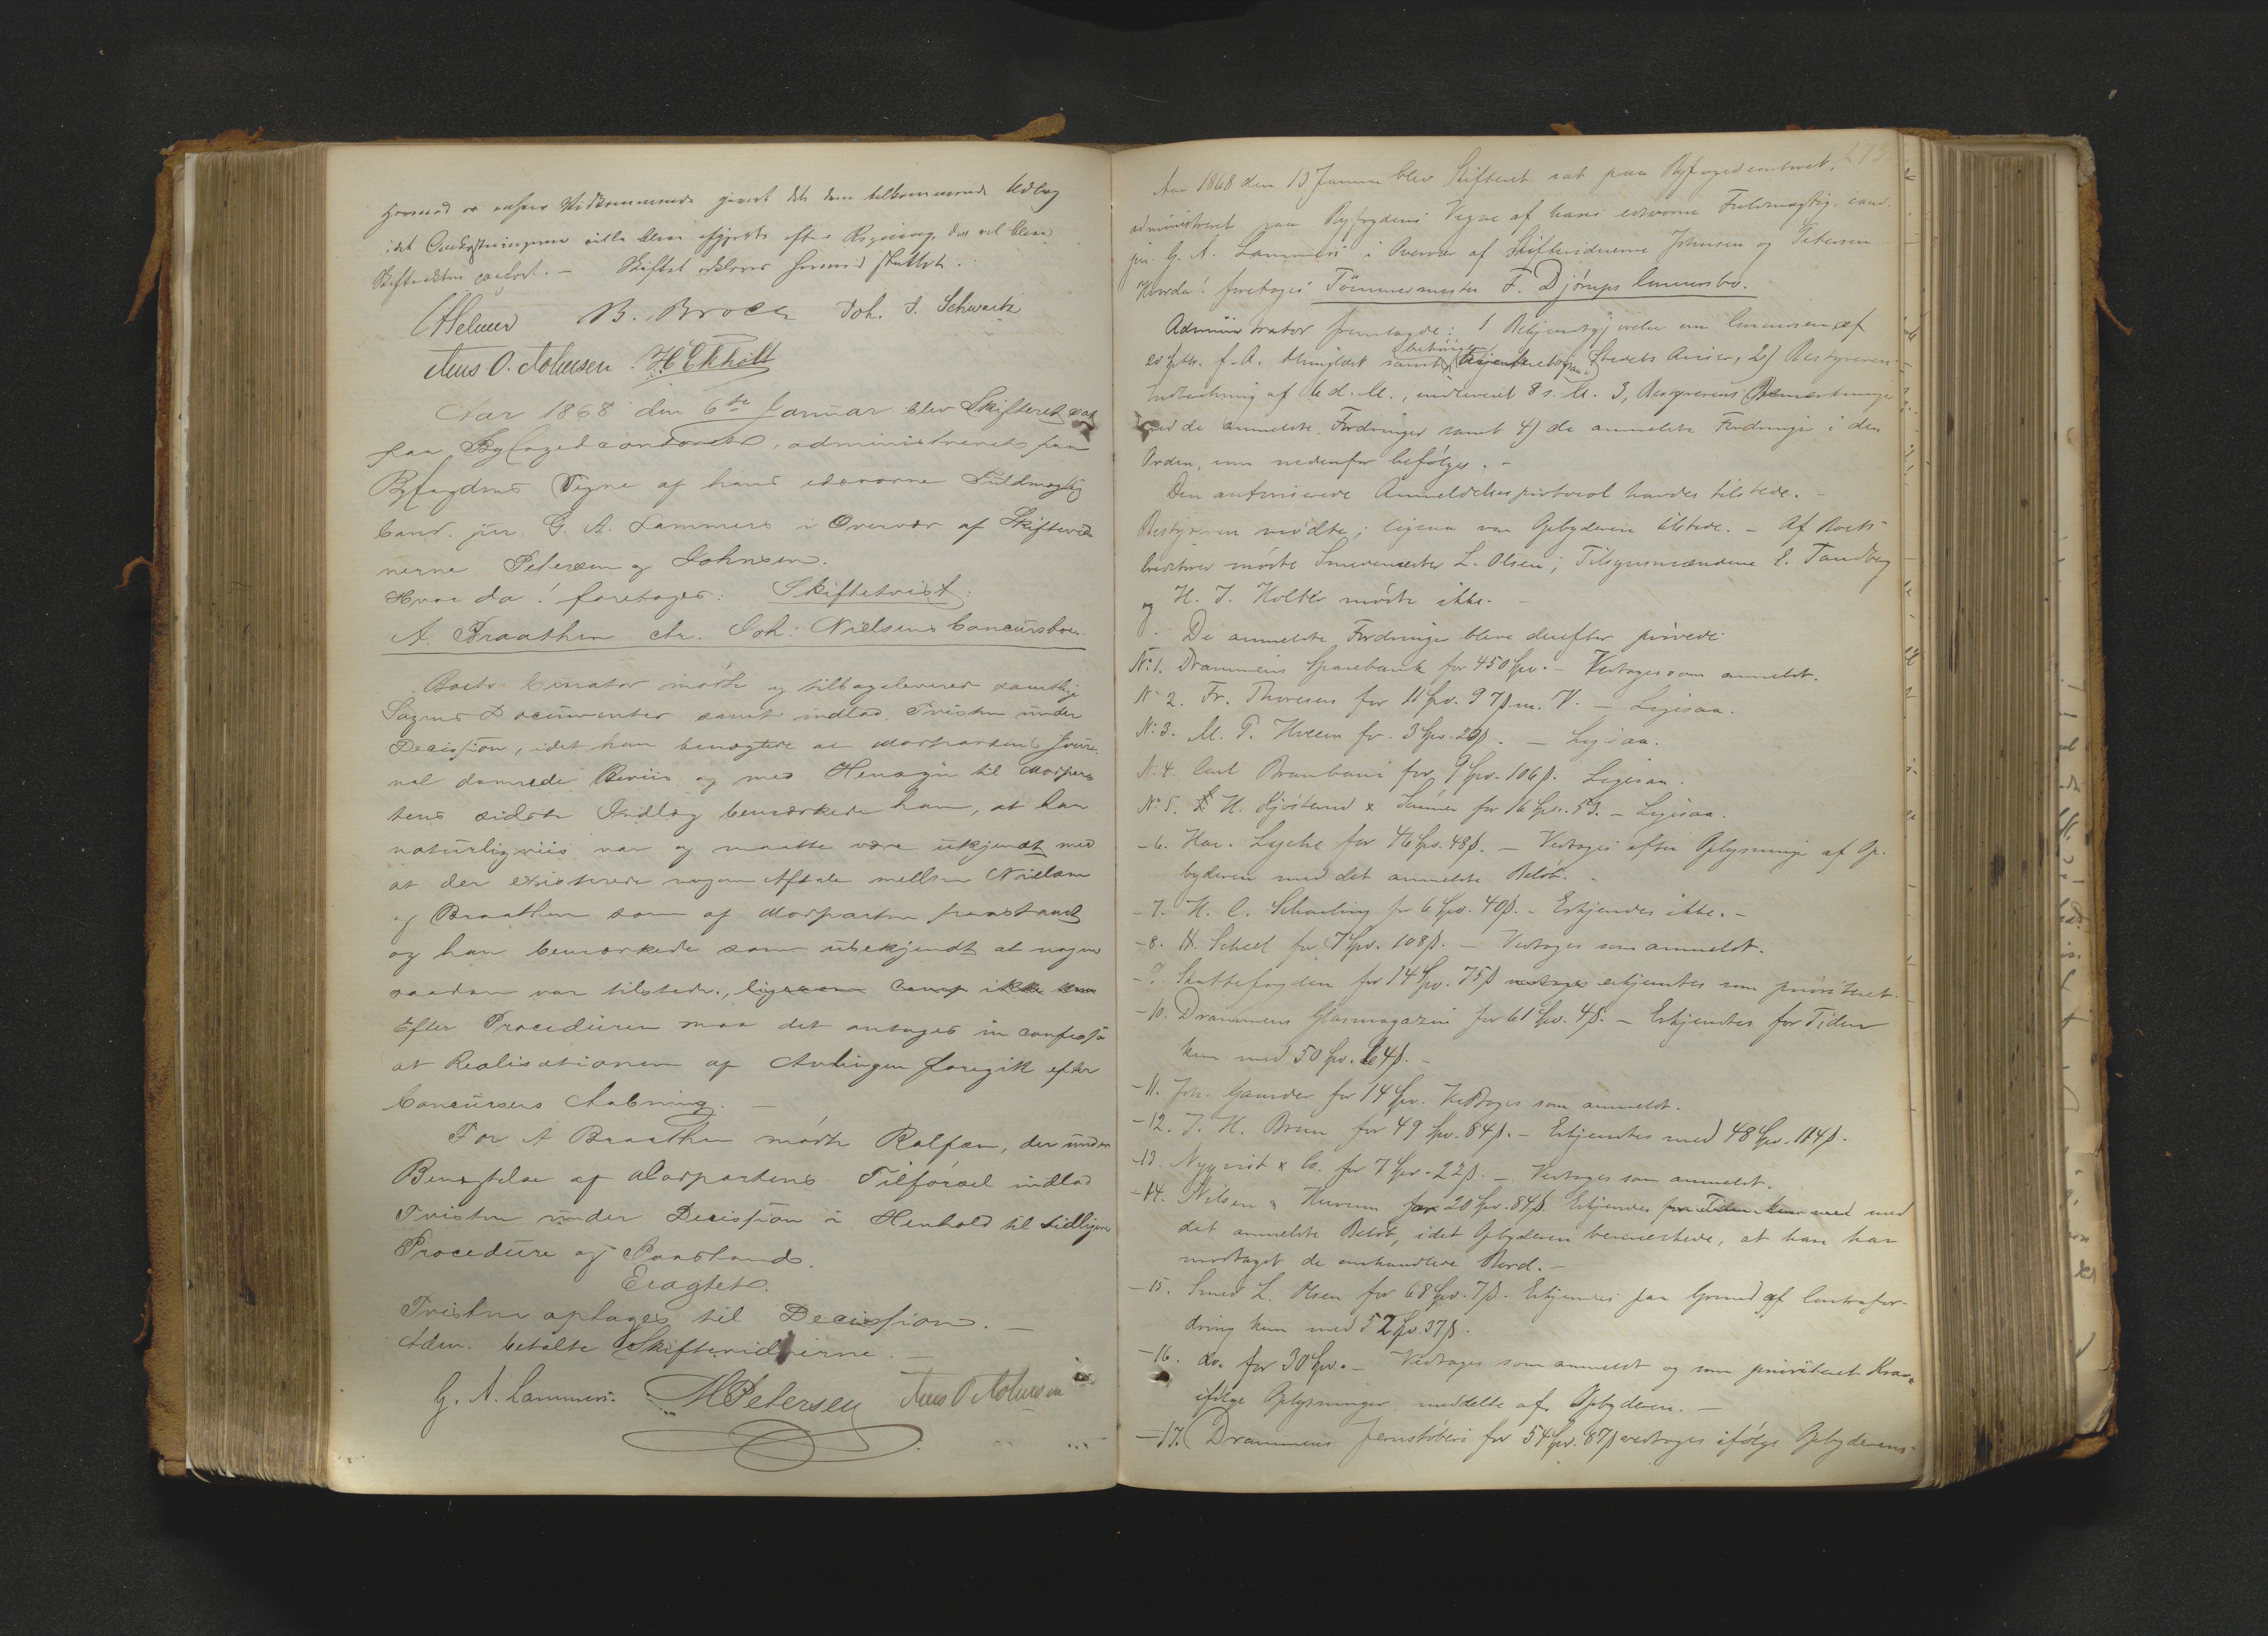 Hermed er enhver Vedkommende gjeort det dem tilkommende Udlæg
idet Omkostningerne ville blive afgjorte efter Regning, der vil blive
Skifteakten vedført. — Skiftet erklæres hermed sluttet.
CHelmer B. Broch Joh. J. Schwartz
Jens O. Johnsen H Ekholt
Aar 1868 den 6te Januar blev Skifteret sat
paa Byfogedcontoret, administreret paa
Byfogdens Vegne af hans edsvorne Fuldmægtig
Cand. jur. G. A. Lammers i Overvær af Skiftevid-
nerne Petersen og Johnsen.
Hvor da! foretoges: Skiftetvist:
A. Braathen ctr. Joh: Nielsens Concursboe.
Boets Curator mødte og tilbageleverer samtlige
Sagens Documenter samt indlod Tvisten under
Decission, idet han benægtede at Modpartens
dannede Beviis og med Hensyn til Modpar-
tens sidste Indlæg bemærkede han, at han
naturligviis var og maatte være ukjendt med
at der existerede nogen Aftale mellem Nielsen
og Braathen som af Modparten paastaaet
og han bemærkede som ubekjendt at nogen
saadan var tilstede., ligesom
Efter Proceduren maa det antages in confesso
at Realisationen af Avlingen foregik efter
Concursens Aabning. —
For A Braathen mødte Ralfsen, der under
Benægtelse af Modpartens Tilførsel indlod
Tvisten under Decission i Henhold til tidligere
Procedure og Paastand.
Eragtet.
Tvisten optages til Decission. —
Adm. betalte Skiftevidnerne. —
G. A. Lammers. MPetersen Jens O Johnsen
275
Aar 1868 den 13 Januar blev Skifteret sat paa Byfogedcontoret,
administreret paa Byfogdens Vegne af hans edsvorne Fuldmægtig cand.
jur. G. A. Lammers i Overvær af Skiftevidnerne Johnsen og Petersen
Hvorda! foretoges Tømmermester F. Djørups Concursbo.
Administrator fremlagde: 1 Bekjendtgjørelse om Concursen af
f. A. thinglæst samt Stedets Aviser, 2) Bestyrerens
Indberetning af 6 d. M., indleveret 8 s. M. 3, Bestyrerens Bemærkninger
ved de anmeldte Fordringer samt 4) de anmeldte Fordringer i den
Orden, som nedenfor befølges. –
Den autoriserede Anmeldelsesprotocol havdes tilstede. –
Bestyreren mødte; ligesaa var Opbyderen tilstede. – Af Boets
Creditorer mødte Smedemester L. Olsen; Tilsynsmændene E. Tandberg
og H. J. Holter mødte ikke. –
De anmeldte Fordringer bleve derefter prøvede
No: 1. Drammens Sparebank for 450 Spd. – Vedtoges som anmeldt.
No 2. Fr. Thoresen for 11 Spd. 97ß m. V. – Ligesaa.
No: 3. M. T. Hveem for 3 Spd. 20ß. – Ligesaa.
N. 4. Carl Brambani for 9 Spd. 106ß. Ligesaa.
No: 5. H. Kjøsterud & Sønner for 16 Spd. 53. – Ligesaa.
– 6. Har. Lyche for 46 Spd. 48ß. – Vedtoges efter Oplysninger af Op-
byderen med det anmeldte Beløb. –
– 7. H. C. Scharling for 6 Spd. 40ß. – Erkjendes ikke. –
– 8. H. Scheel for 7 Spd. 108ß. – Vedtoges som anmeldt.
– 9. Skattefogden for 14 Spd. 75ß vedtoges erkjendtes som prioriteret.
– 10. Drammens Glasmagazin for 61 Spd. 4ß. – Erkjendtes for Tiden
kun med 50 Spd. 64ß. –
– 11. Joh. Gaarder for 14 Spd. Vedtoges som anmeldt.
– 12. J. H. Bruun for 49 Spd. 84ß. – Erkjendtes med 48 Spd. 114ß.
– 13. Nyqvist & Co. for 7 Spd. 22ß. – Vedtoges som anmeldt.
– 14. Nilsen & Hurum for 20 Spd. 84ß. Erkjendes for Tiden kun med med
det anmeldte Beløb, idet Opbyderen bemærkede, at han har
modtaget de omhandlede Bord. –
– 15. Smed L. Olsen for 68 Spd. 7ß. Erkjendes paa Grund af Contrafor-
dring kun med 52 Spd. 37ß.
– 16. do. for 30 Spd. – Vedtoges som anmeldt og som prioriteret Krav
ifølge Oplysninger, meddelte af Opbyderen. –
– 17. Drammens Jernstøberi for 54 Spd. 87ß vedtoges ifølge Opbyderens